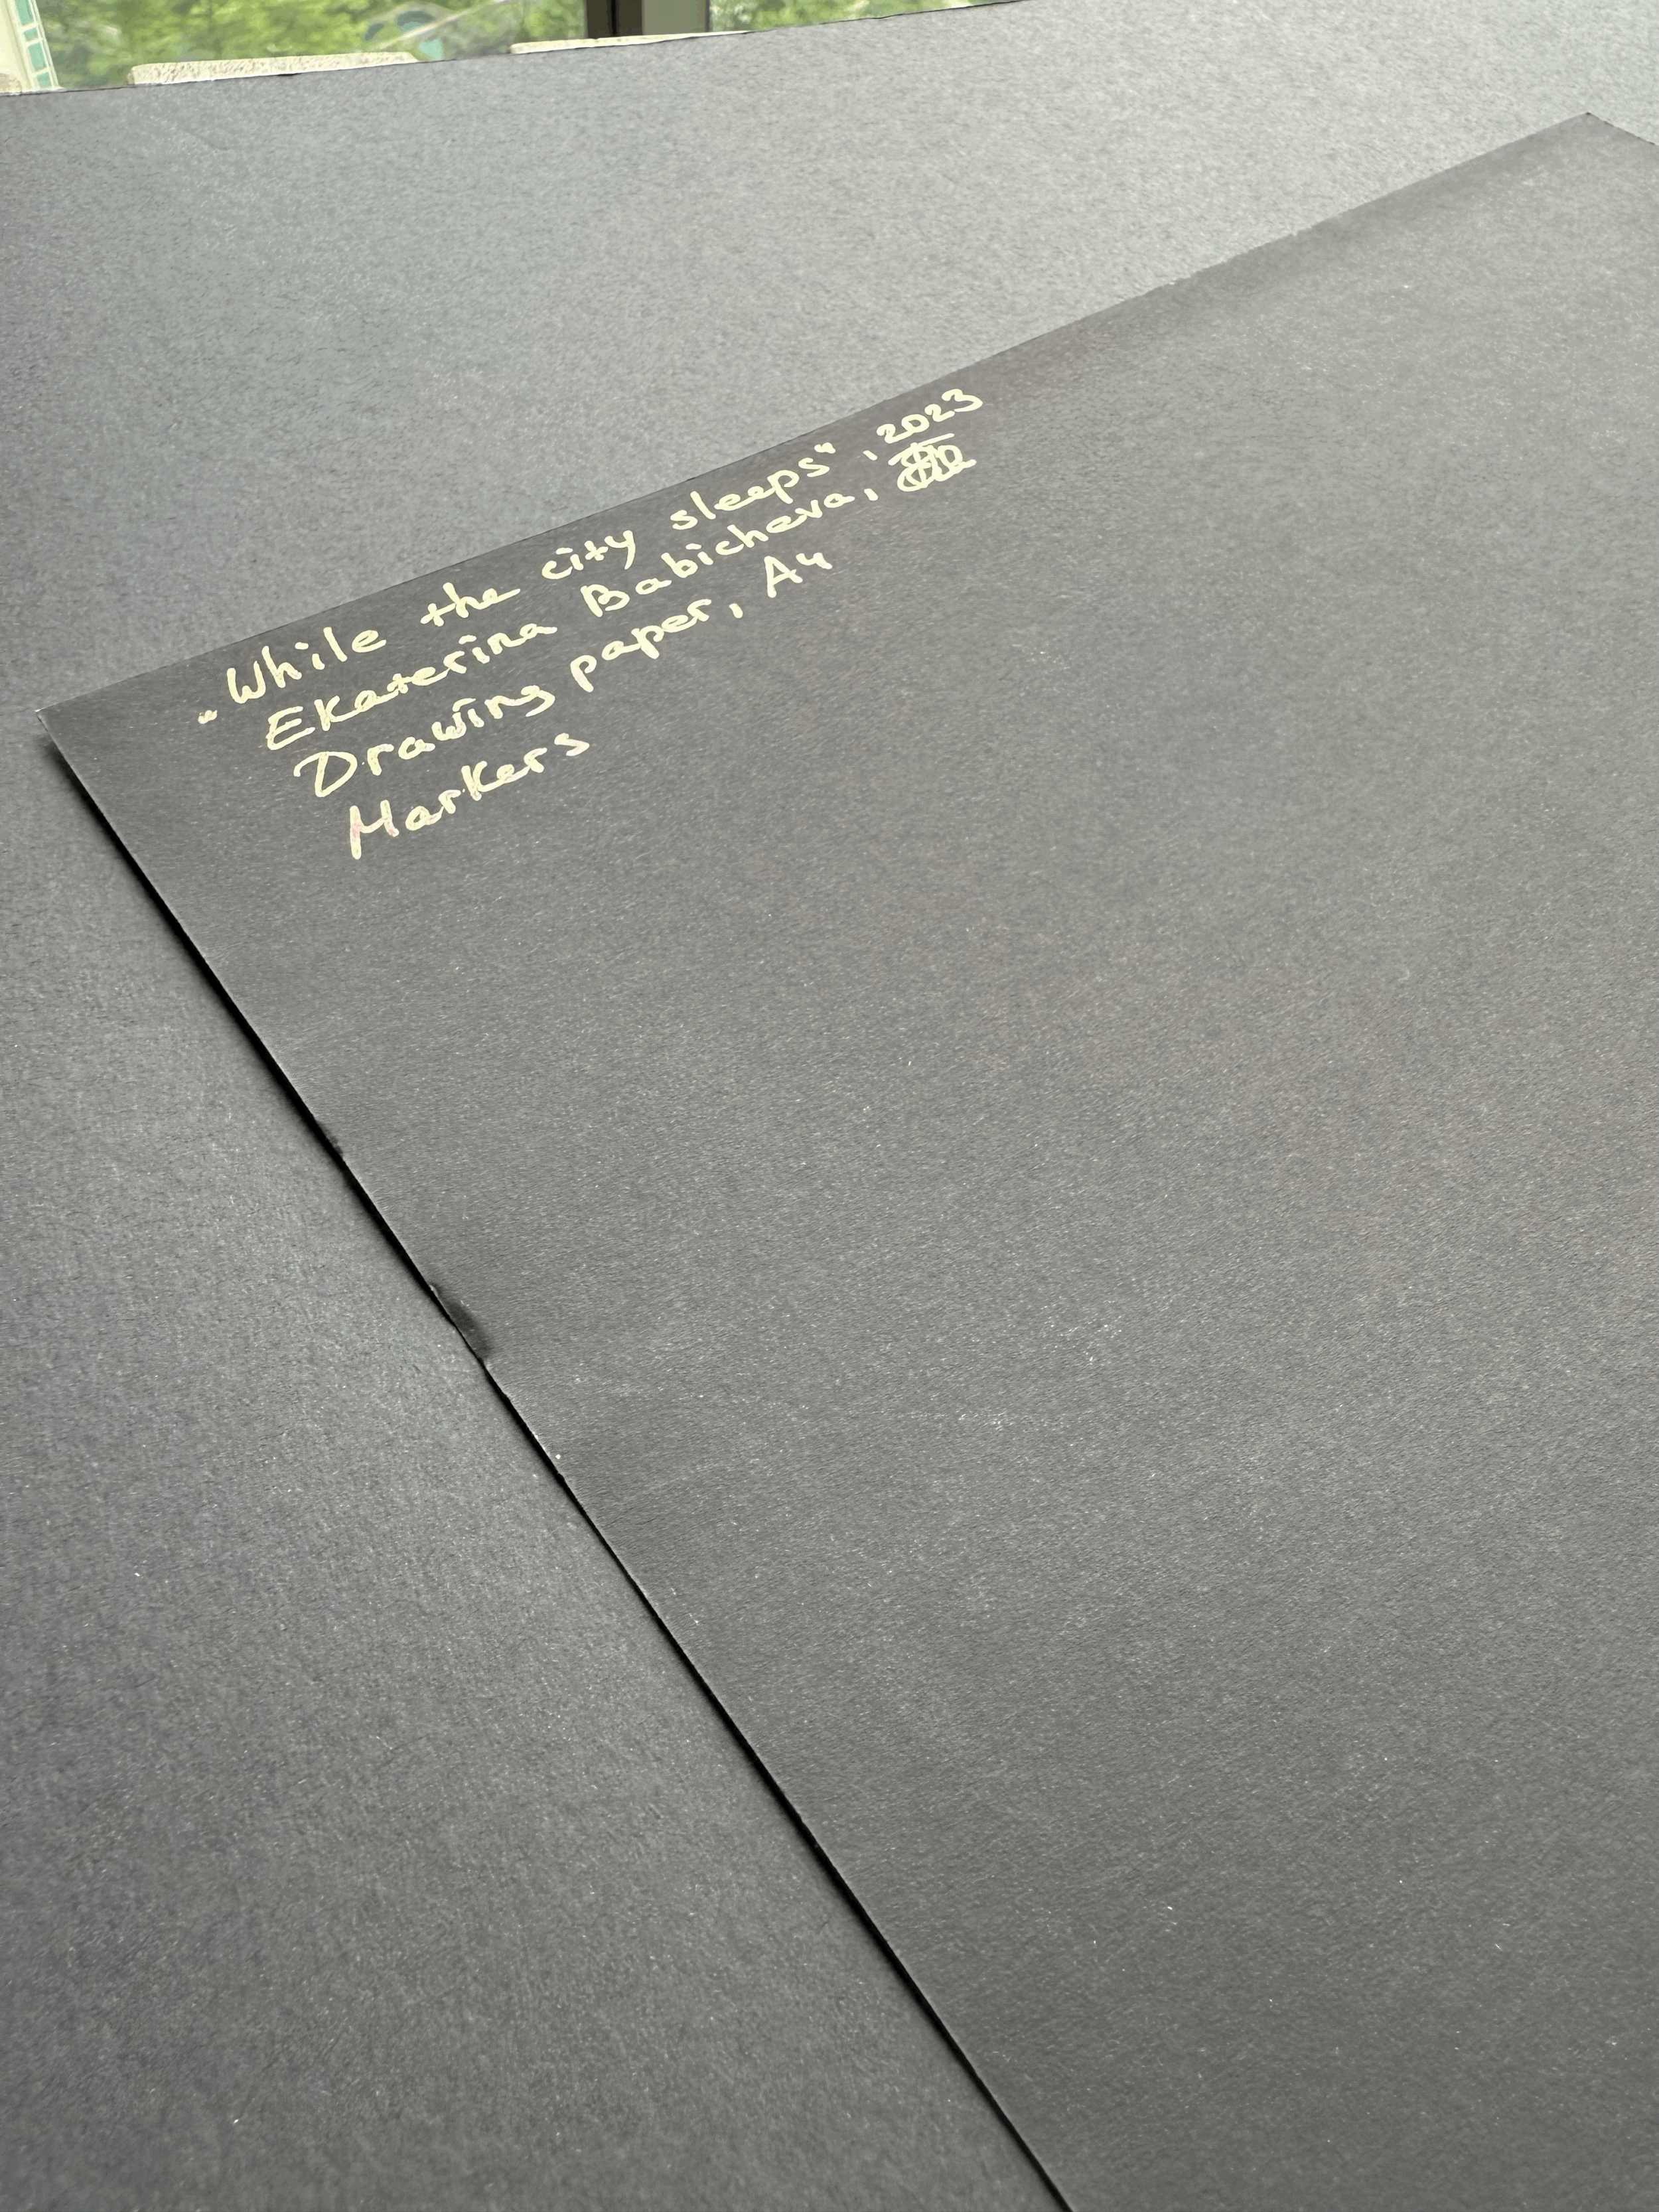 „While the city sleeps“, 2023
Ekaterina Babicheva,
Drawing paper, A4
Markers